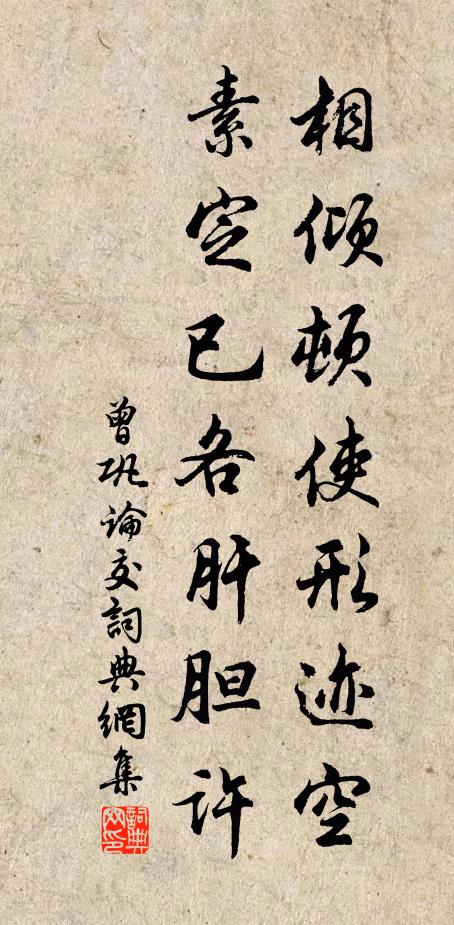 相倾顿使形迹空
素定已各肝胆许
曾巩论交詞典網集
詞典网印